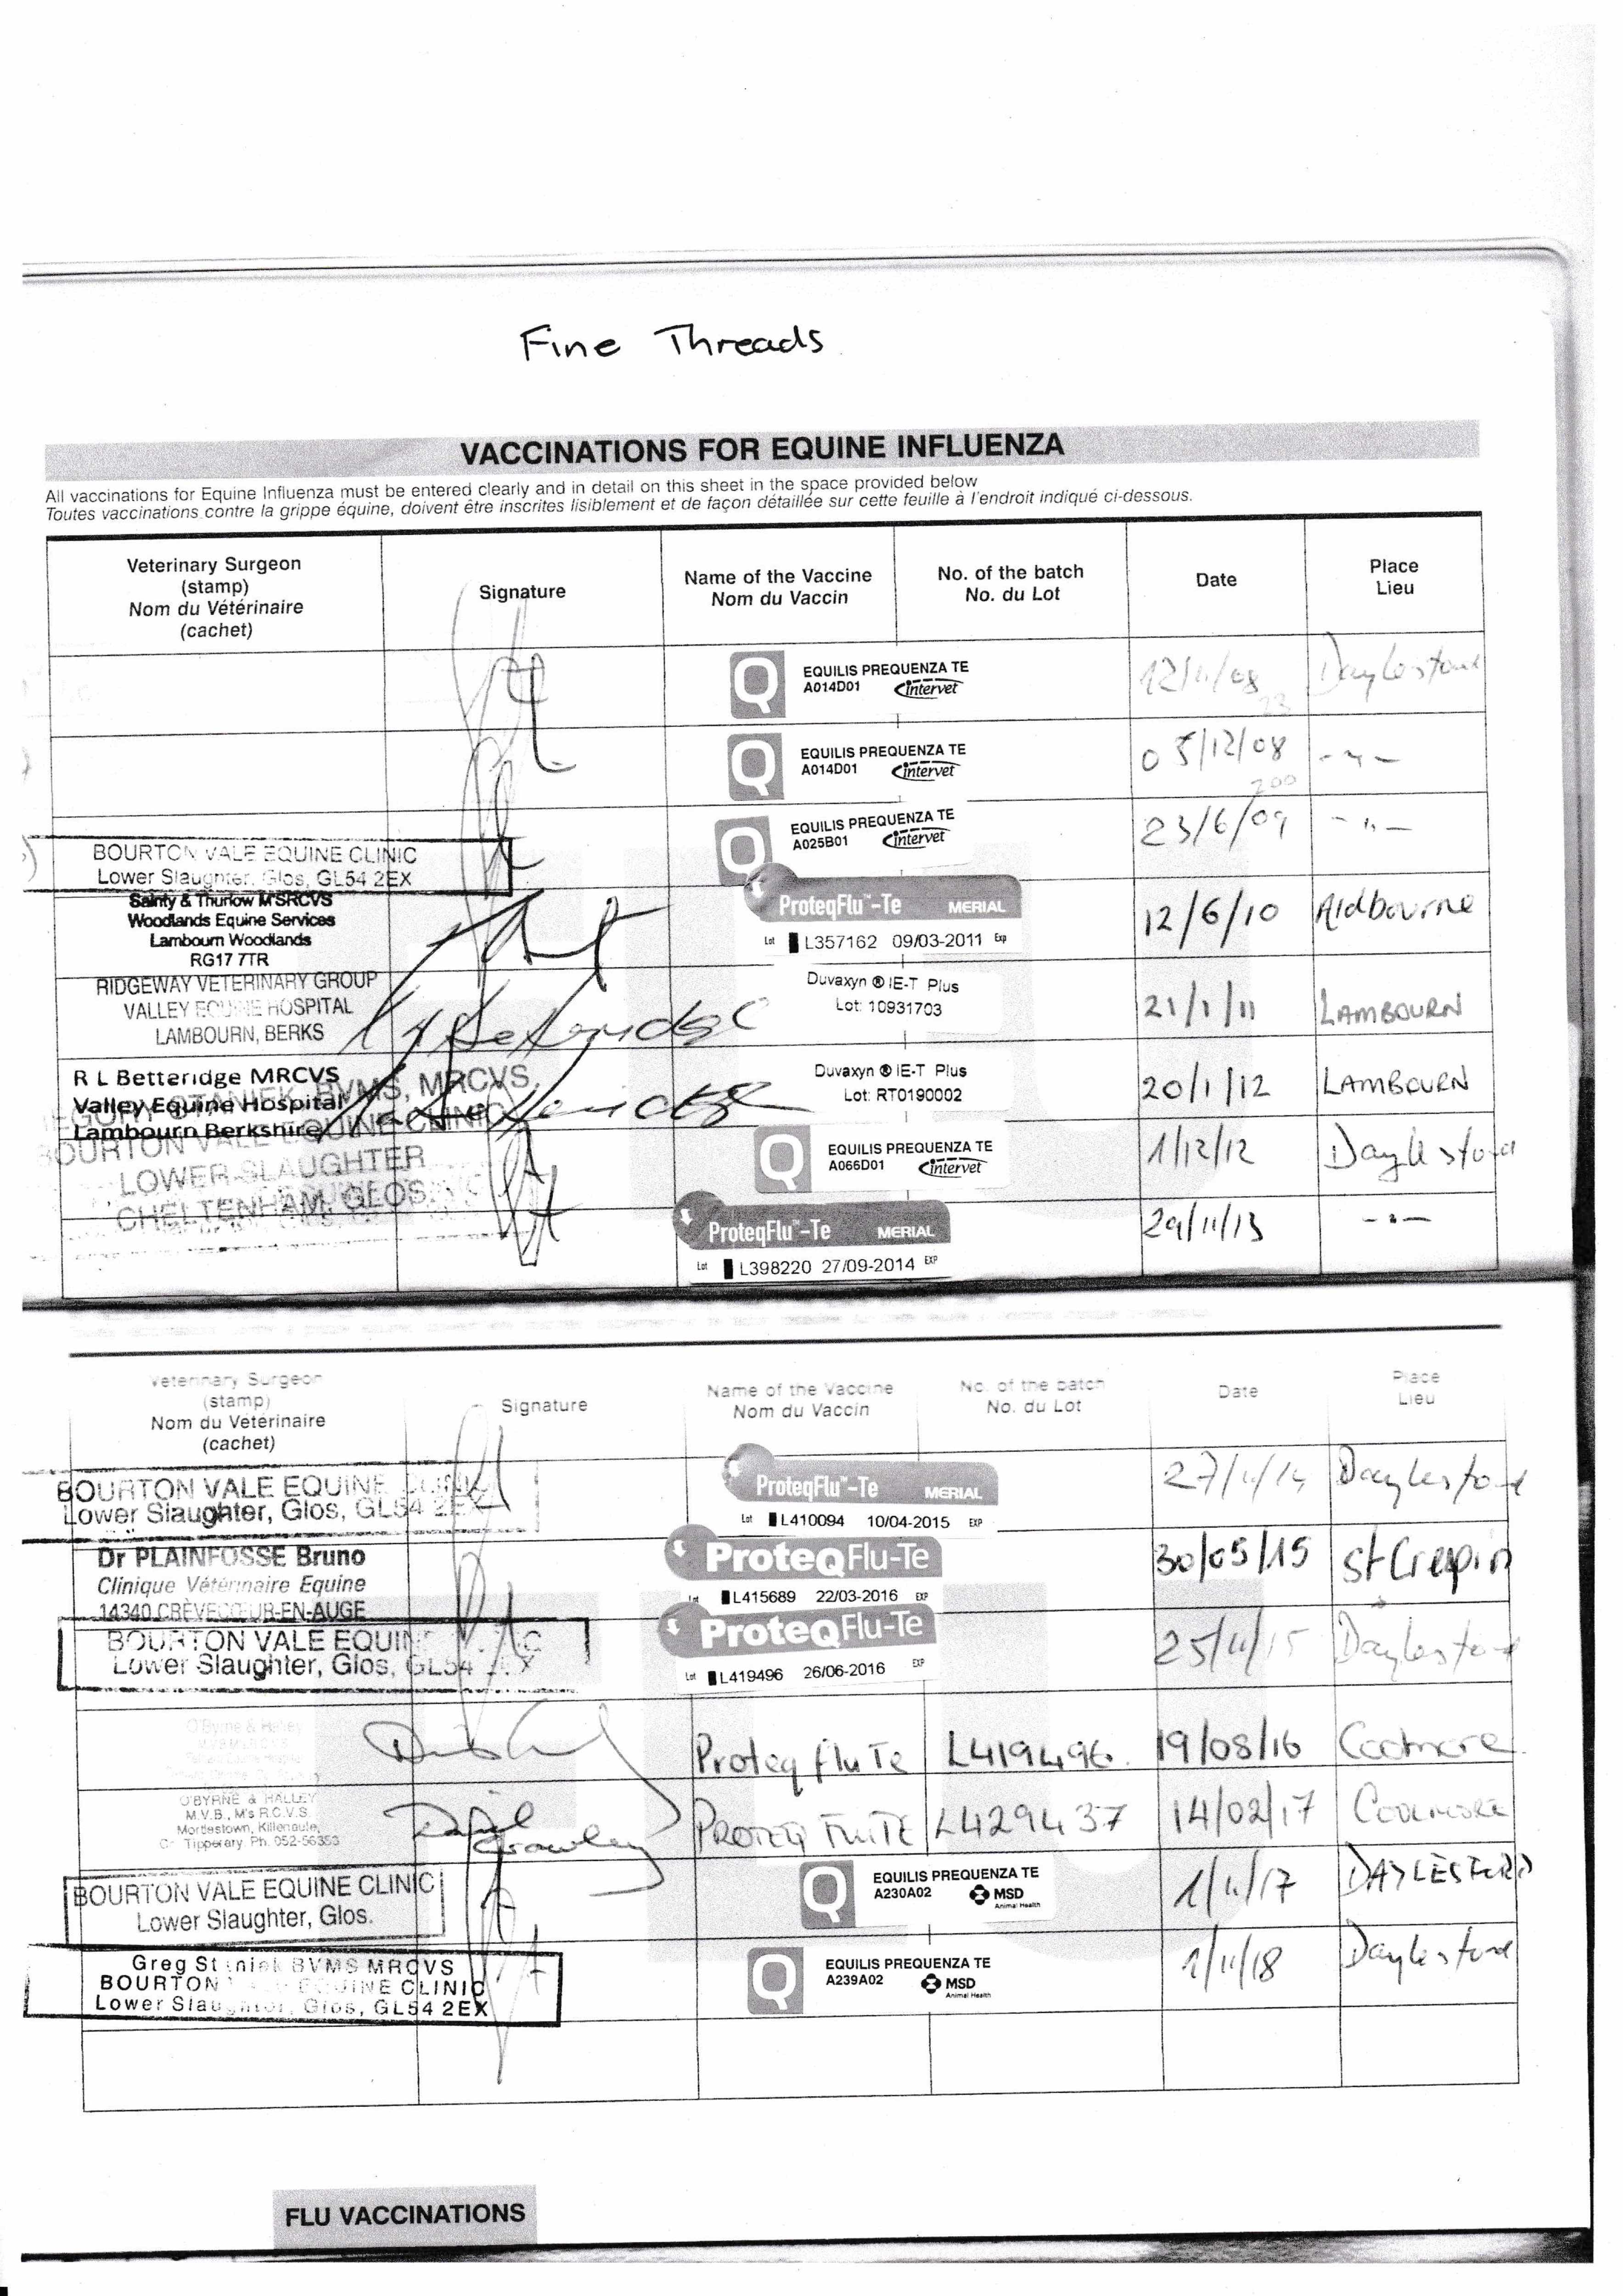 Fine Threads
VACCINATIONS FOR EQUINE INFLUENZA
All vaccinations for Equine Influenza must be entered clearly and in detail on this sheet in the space provided below
Toutes vaccinations contre la grippe équine, doivent être inscrites lisiblement et de façon détaillée sur cette feuille à l'endroit indiqué ci-dessous.
Veterinary Surgeon
(stamp)
Nom du Vétérinaire
(cachet)
Signature
Name of the Vaccine
Nom du Vaccin
No. of the batch
No. du Lot
Date
Place
Lieu
EQUILIS PREQUENZA TE
A014D01 Intervet
12/11/08
Daylesford
EQUILIS PREQUENZA TE
A014D01 Intervet
05/12/08
BOURTON VALE EQUINE CLINIC
Lower Slaughter, Glos, GL54 2EX
EQUILIS PREQUENZA TE
A025B01 Intervet
23/6/09
Sainty & Thurlow MSRCVS
Woodlands Equine Services
Lambourn Woodlands
RG17 7TR
ProteqFlu™-Te MERIAL
Lot L357162 09/03-2011 Exp
12/6/10
Aldbourne
RIDGEWAY VETERINARY GROUP
VALLEY EQUINE HOSPITAL
LAMBOURN, BERKS
Duvaxyn ® IE-T Plus
Lot: 10931703
21/1/11
LAMBOURN
R L Betteridge MRCVS
Valley Equine Hospital
Lambourn Berkshire
Duvaxyn ® IE-T Plus
Lot: RT0190002
20/1/12
LAMBOURN
STANIEK, BVMS, MRCVS,
BOURTON VALE EQUINE CLINIC
LOWER SLAUGHTER
CHELTENHAM, GLOS.
EQUILIS PREQUENZA TE
A066D01 Intervet
1/12/12
Daylesford
ProteqFlu™-Te MERIAL
Lot L398220 27/09-2014 EXP
29/11/13
Veterinary Surgeon
(stamp)
Nom du Vétérinaire
(cachet)
Signature
Name of the Vaccine
Nom du Vaccin
No. of the batch
No. du Lot
Date
Place
Lieu
BOURTON VALE EQUINE CLINIC
Lower Slaughter, Glos, GL54 2EX
ProteqFlu™-Te MERIAL
Lot L410094 10/04-2015 EXP
27/11/14
Daylesford
Dr PLAINFOSSE Bruno
Clinique Vétérinaire Equine
14340 CRÈVECŒUR-EN-AUGE
ProteqFlu-Te
Lot L415689 22/03-2016 EXP
30/05/15
St Crepin
BOURTON VALE EQUINE CLINIC
Lower Slaughter, Glos, GL54 2EX
ProteqFlu-Te
Lot L419496 26/06-2016 EXP
25/11/15
Daylesford
O'Byrne & Halley
Proteq flu Te
L419496.
19/08/16
Coolmore
O'BYRNE & HALLEY
M.V.B., M's R.C.V.S.
Mortlestown, Killenaule,
Co Tipperary. Ph. 052-56353
Crowley
PROTEQ FLUTE
L429437
14/02/17
COOLMORE
BOURTON VALE EQUINE CLINIC
Lower Slaughter, Glos.
EQUILIS PREQUENZA TE
A230A02 MSD
Animal Health
1/11/17
DAYLESFORD
Greg Staniek BVMS MRCVS
BOURTON VALE EQUINE CLINIC
Lower Slaughter, Glos, GL54 2EX
EQUILIS PREQUENZA TE
A239A02 MSD
Animal Health
1/11/18
Daylesford
FLU VACCINATIONS